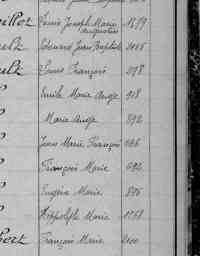 illot Louis Joseph Marie 1879
Augustin
ult Edouard Jean Baptiste
ult Louis François 378
Emile Marie Ange 918
Marie Ange 892
Jean Marie François
François Marie 692
Eugène Marie 806
Hippolyte Marie 1758
bert François Marie 2100